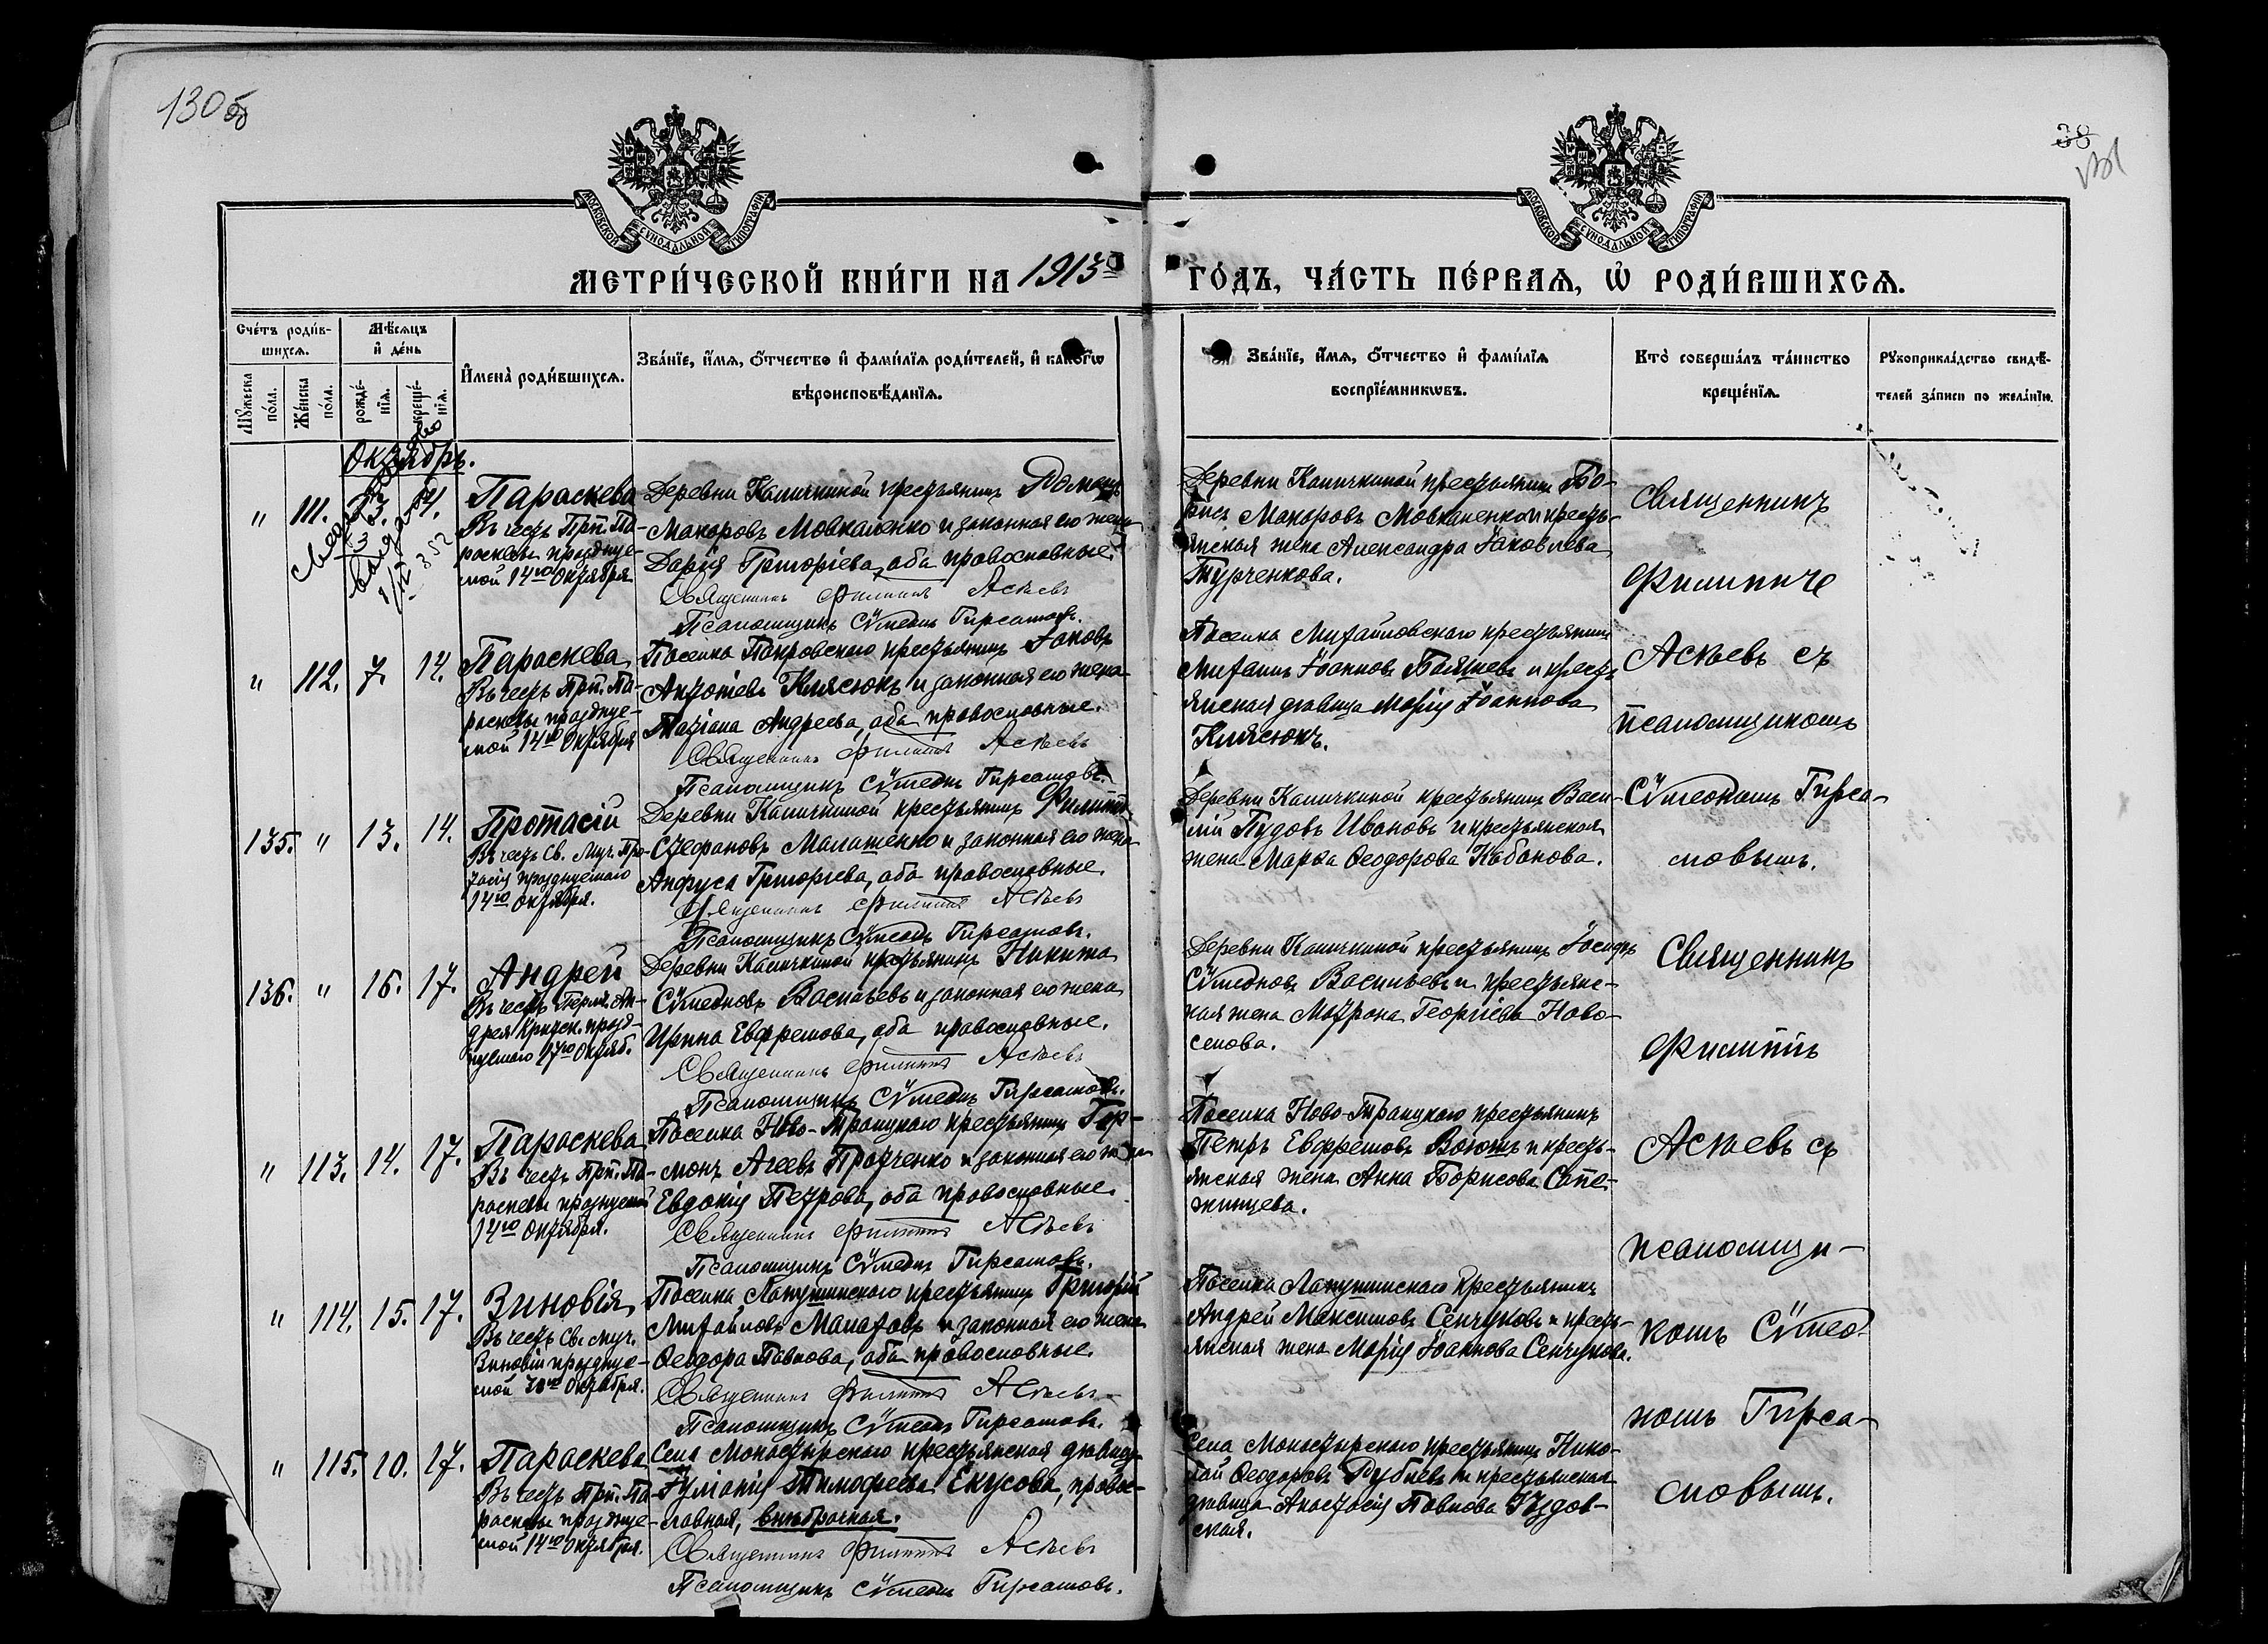 130 об
38
131
МОСКОВСКОЙ СѴНОДАЛЬНОЙ ТИПОГРАФІИ
МОСКОВСКОЙ СѴНОДАЛЬНОЙ ТИПОГРАФІИ
МЕТРИ́ЧЕСКОЙ КНИ́ГИ НА 1913й ГО́ДЪ, ЧА́СТЬ ПЕ́РВАѦ, Ѡ҆ РОДИ́ВШИХСѦ.
Сче́тъ роди́в-
шихсѧ.
Мꙋжеска по́ла.
Же́нска по́ла.
Мѣ́сѧцъ
и҆ де́нь
рожде́-нїѧ.
креще́-нїѧ.
И҆мена̀ роди́вшихсѧ.
Зва́нїе, и҆́мѧ, ѻ҆́тчество и҆ фами́лїѧ роди́телей, и҆ како́гѡ
вѣроисповѣ́данїѧ.
Зва́нїе, и҆́мѧ, ѻ҆́тчество и҆ фами́лїѧ
воспрїе́мникѡвъ.
Кто̀ соверша́лъ та́инство
креще́нїѧ.
Рꙋкоприкла́дство свидѣ́-
телей за́писи по жела́нїю.
Октябрь.
" 111. 14.
Параскева
Въ честь Прп. Па-
раскевы празднуе-
мой 14го Октября
Деревни Каничкиной крестьянинъ Романъ
Макаровъ Мовчаненко и законная его жена
Дарія Григоріева, оба православные.
Священникъ Филиппъ Асѣевъ
Псаломщикъ Сѵмеонъ Гирсамовъ.
Деревни Каничкиной крестьянинъ Бо-
рисъ Макаровъ Мовчаненко и кресть-
янская жена Александра Іаковлева
Турченкова.
" 112. 7. 14.
Параскева
Въ честь Прп. Па-
раскевы празднуе-
мой 14го Октября
Поселка Покровскаго крестьянинъ Іаковъ
Антоніевъ Клясюкъ и законная его жена
Татіана Андреева, оба православные.
Священникъ Филиппъ Асѣевъ
Псаломщикъ Сѵмеонъ Гирсамовъ.
Поселка Михайловскаго крестьянинъ
Михаилъ Іоанновъ и кресть-
янская дѣвица Марія Іоаннова
Клясюкъ.
135. " 13. 14.
Протасій
Въ честь Св. Муч. Про-
тасія празднуемаго
14го Октября.
Деревни Каничкиной крестьянинъ Филиппъ
Стефановъ Малашенко и законная его жена
Анфуса Григоріева, оба православные.
Священникъ Филиппъ Асѣевъ
Псаломщикъ Сѵмеонъ Гирсамовъ.
Деревни Каничкиной крестьянинъ Васи-
лій Пудовъ Ивановъ и крестьянская
жена Марѳа Ѳеодорова Кабанова.
136. " 16. 17.
Андрей
Въ честь Прмч. Ан-
дрея Критск. празд-
нуемаго 17го Октяб.
Деревни Каничкиной крестьянинъ Никита
Сѵмеоновъ Васильевъ и законная его жена
Ирина Евфремова, оба православные.
Священникъ Филиппъ Асѣевъ
Псаломщикъ Сѵмеонъ Гирсамовъ.
Деревни Каничкиной крестьянинъ Іосифъ
Сѵмеоновъ Васильевъ и крестьянс-
кая жена Матрона Георгіева Ново-
селова.
" 113. 14. 17.
Параскева
Въ честь Прп. Па-
раскевы празднуемой
14го Октября.
Поселка Ново-Троицкаго крестьянинъ Гер-
монъ Агеевъ Протченко и законная его жена
Евдокія Петрова, оба православные.
Священникъ Филиппъ Асѣевъ
Псаломщикъ Сѵмеонъ Гирсамовъ.
Поселка Ново-Троицкаго крестьянинъ
Петръ Евфремовъ и кресть-
янская жена Анна Борисова Сапе-
жинцева.
" 114. 15. 17.
Зиновія
Въ честь Св. муч.
Зиновіи празднуе-
мой 30го Октября.
Поселка Лапушинскаго крестьянинъ Григорій
Михайловъ Малаховъ и законная его жена
Ѳеодора Павлова, оба православные.
Священникъ Филиппъ Асѣевъ
Псаломщикъ Сѵмеонъ Гирсамовъ.
Поселка Лапушинскаго Крестьянинъ
Андрей Максимовъ Сенчуковъ и кресть-
янская жена Марія Іоаннова Сенчукова.
" 115. 10. 17.
Параскева
Въ честь Прп. Па-
раскевы празднуе-
мой 14го Октября.
Села Монастырскаго крестьянская дѣвица
Іуліанія Тимофеева Екусова, правос-
лавная, внѣбрачная.
Священникъ Филиппъ Асѣевъ
Псаломщикъ Сѵмеонъ Гирсамовъ.
Села Монастырскаго крестьянинъ Нико-
лай Ѳеодоровъ Рублевъ и крестьянская
дѣвица Анастасія Павлова
Священникъ
Филиппъ
Асѣевъ съ
псаломщикомъ
Сѵмеономъ Гирса-
мовымъ.
Священникъ
Филиппъ
Асѣевъ съ
псаломщи-
комъ Сѵмео-
номъ Гирса-
мовымъ.